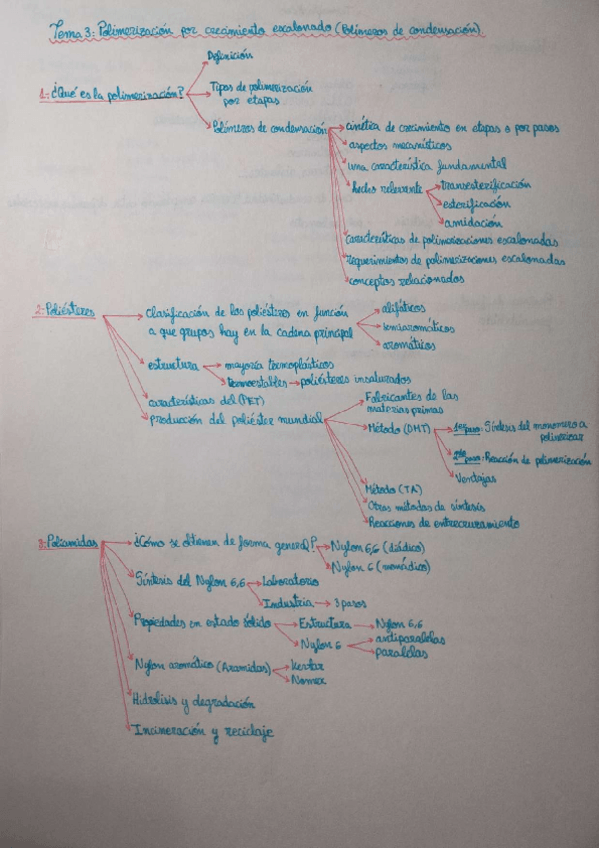 Tema 3: Polimerización por crecimiento escalonado (Polímeros de condensación).
Definición
1.- ¿Qué es la polimerización?
Tipos de polimerización
por etapas
Polímeros de condensación
cinética de crecimiento en etapas o por pasos
aspectos mecanísticos
una característica fundamental
hecho relevante
transesterificación
esterificación
amidación
características de polimerizaciones escalonadas
requerimientos de polimerizaciones escalonadas
conceptos relacionados
2.- Poliésteres
Clasificación de los poliésteres en función
a que grupos hay en la cadena principal
alifáticos
semiaromáticos
aromáticos
estructura
mayoría termoplásticos
termoestables
poliésteres insaturados
características del (PET)
producción del poliéster mundial
Fabricantes de las
materias primas
Método (DMT)
1er paso: Síntesis del monómero a
polimerizar
2do paso: Reacción de polimerización
Ventajas
Método (TA)
Otros métodos de síntesis
Reacciones de entrecruzamiento
3.- Poliamidas
¿Cómo se obtienen de forma general?
Nylon 6,6 (diádico)
Nylon 6 (monádico)
Síntesis del Nylon 6,6
Laboratorio
Industria
3 pasos
Propiedades en estado sólido
Estructura
Nylon 6,6
Nylon 6
antiparalelas
paralelas
Nylon aromático (Aramidas)
Kevlar
Nomex
Hidrólisis y degradación
Incineración y reciclaje